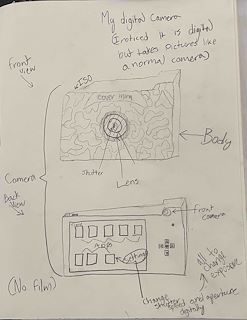 My digital Camera
(I noticed it is digital
but takes pictures like
a normal camera)
Front
view
ISO
cover thing
Body
Shutter
Lens
Camera
Back
view
front
camera
Apps
Settings
(No film)
change shutter
speed and aperture
digitally
all to
change
exposure